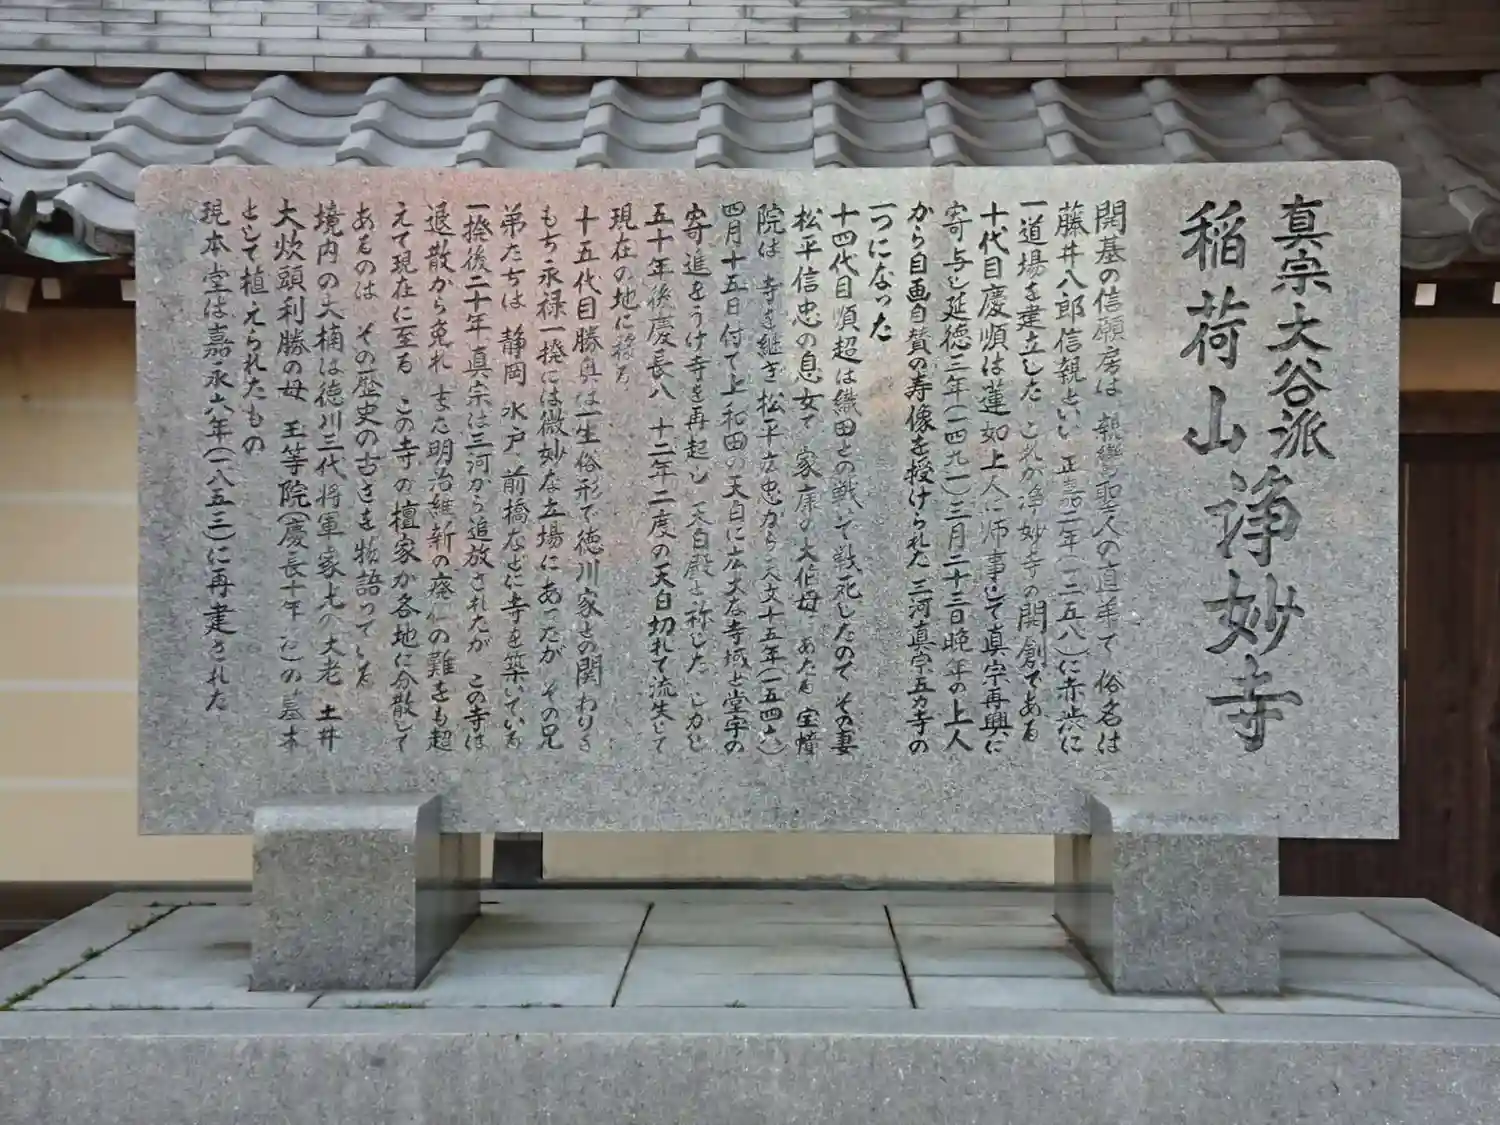 真宗大谷派
稲荷山 浄妙寺
開基の信願房は 親鸞聖人の直弟で 俗名は
藤井八郎信親といい 正嘉二年(一二五八)に赤渋に
一道場を建立した これが浄妙寺の開創である
十代目慶順は蓮如上人に師事して真宗再興に
寄与し延徳三年(一四九一)三月二十三日晩年の上人
から自画自賛の寿像を授けられた 三河真宗五カ寺の
一つになった
十四代目順超は織田との戦いで戦死したので その妻
松平信忠の息女で 家康の大伯母にあたる 宝憧
院は 寺を継ぎ松平広忠から天文十五年(一五四六)
四月十五日付で上和田の天白に広大な寺域と堂宇の
寄進をうけ寺を再起し 天白殿と称した しかし
五十年後慶長八 十二年二度の天白切れで流失して
現在の地に移る
十五代目勝奥は一生俗形で徳川家との関わりを
もち 永禄一揆には微妙な立場にあったが その兄
弟たちは 静岡 水戸 前橋などに寺を築いている
一揆後二十年 真宗は三河から追放されたが この寺は
退散から免れ また明治維新の廃仏の難をも超
えて現在に至る この寺の檀家が各地に分散して
あるのは その歴史の古さを物語っている
境内の大楠は徳川三代将軍家光の大老 土井
大炊頭利勝の母 玉等院(慶長十年 亡)の墓木
として植えられたもの
現本堂は嘉永六年(一八五三)に再建された